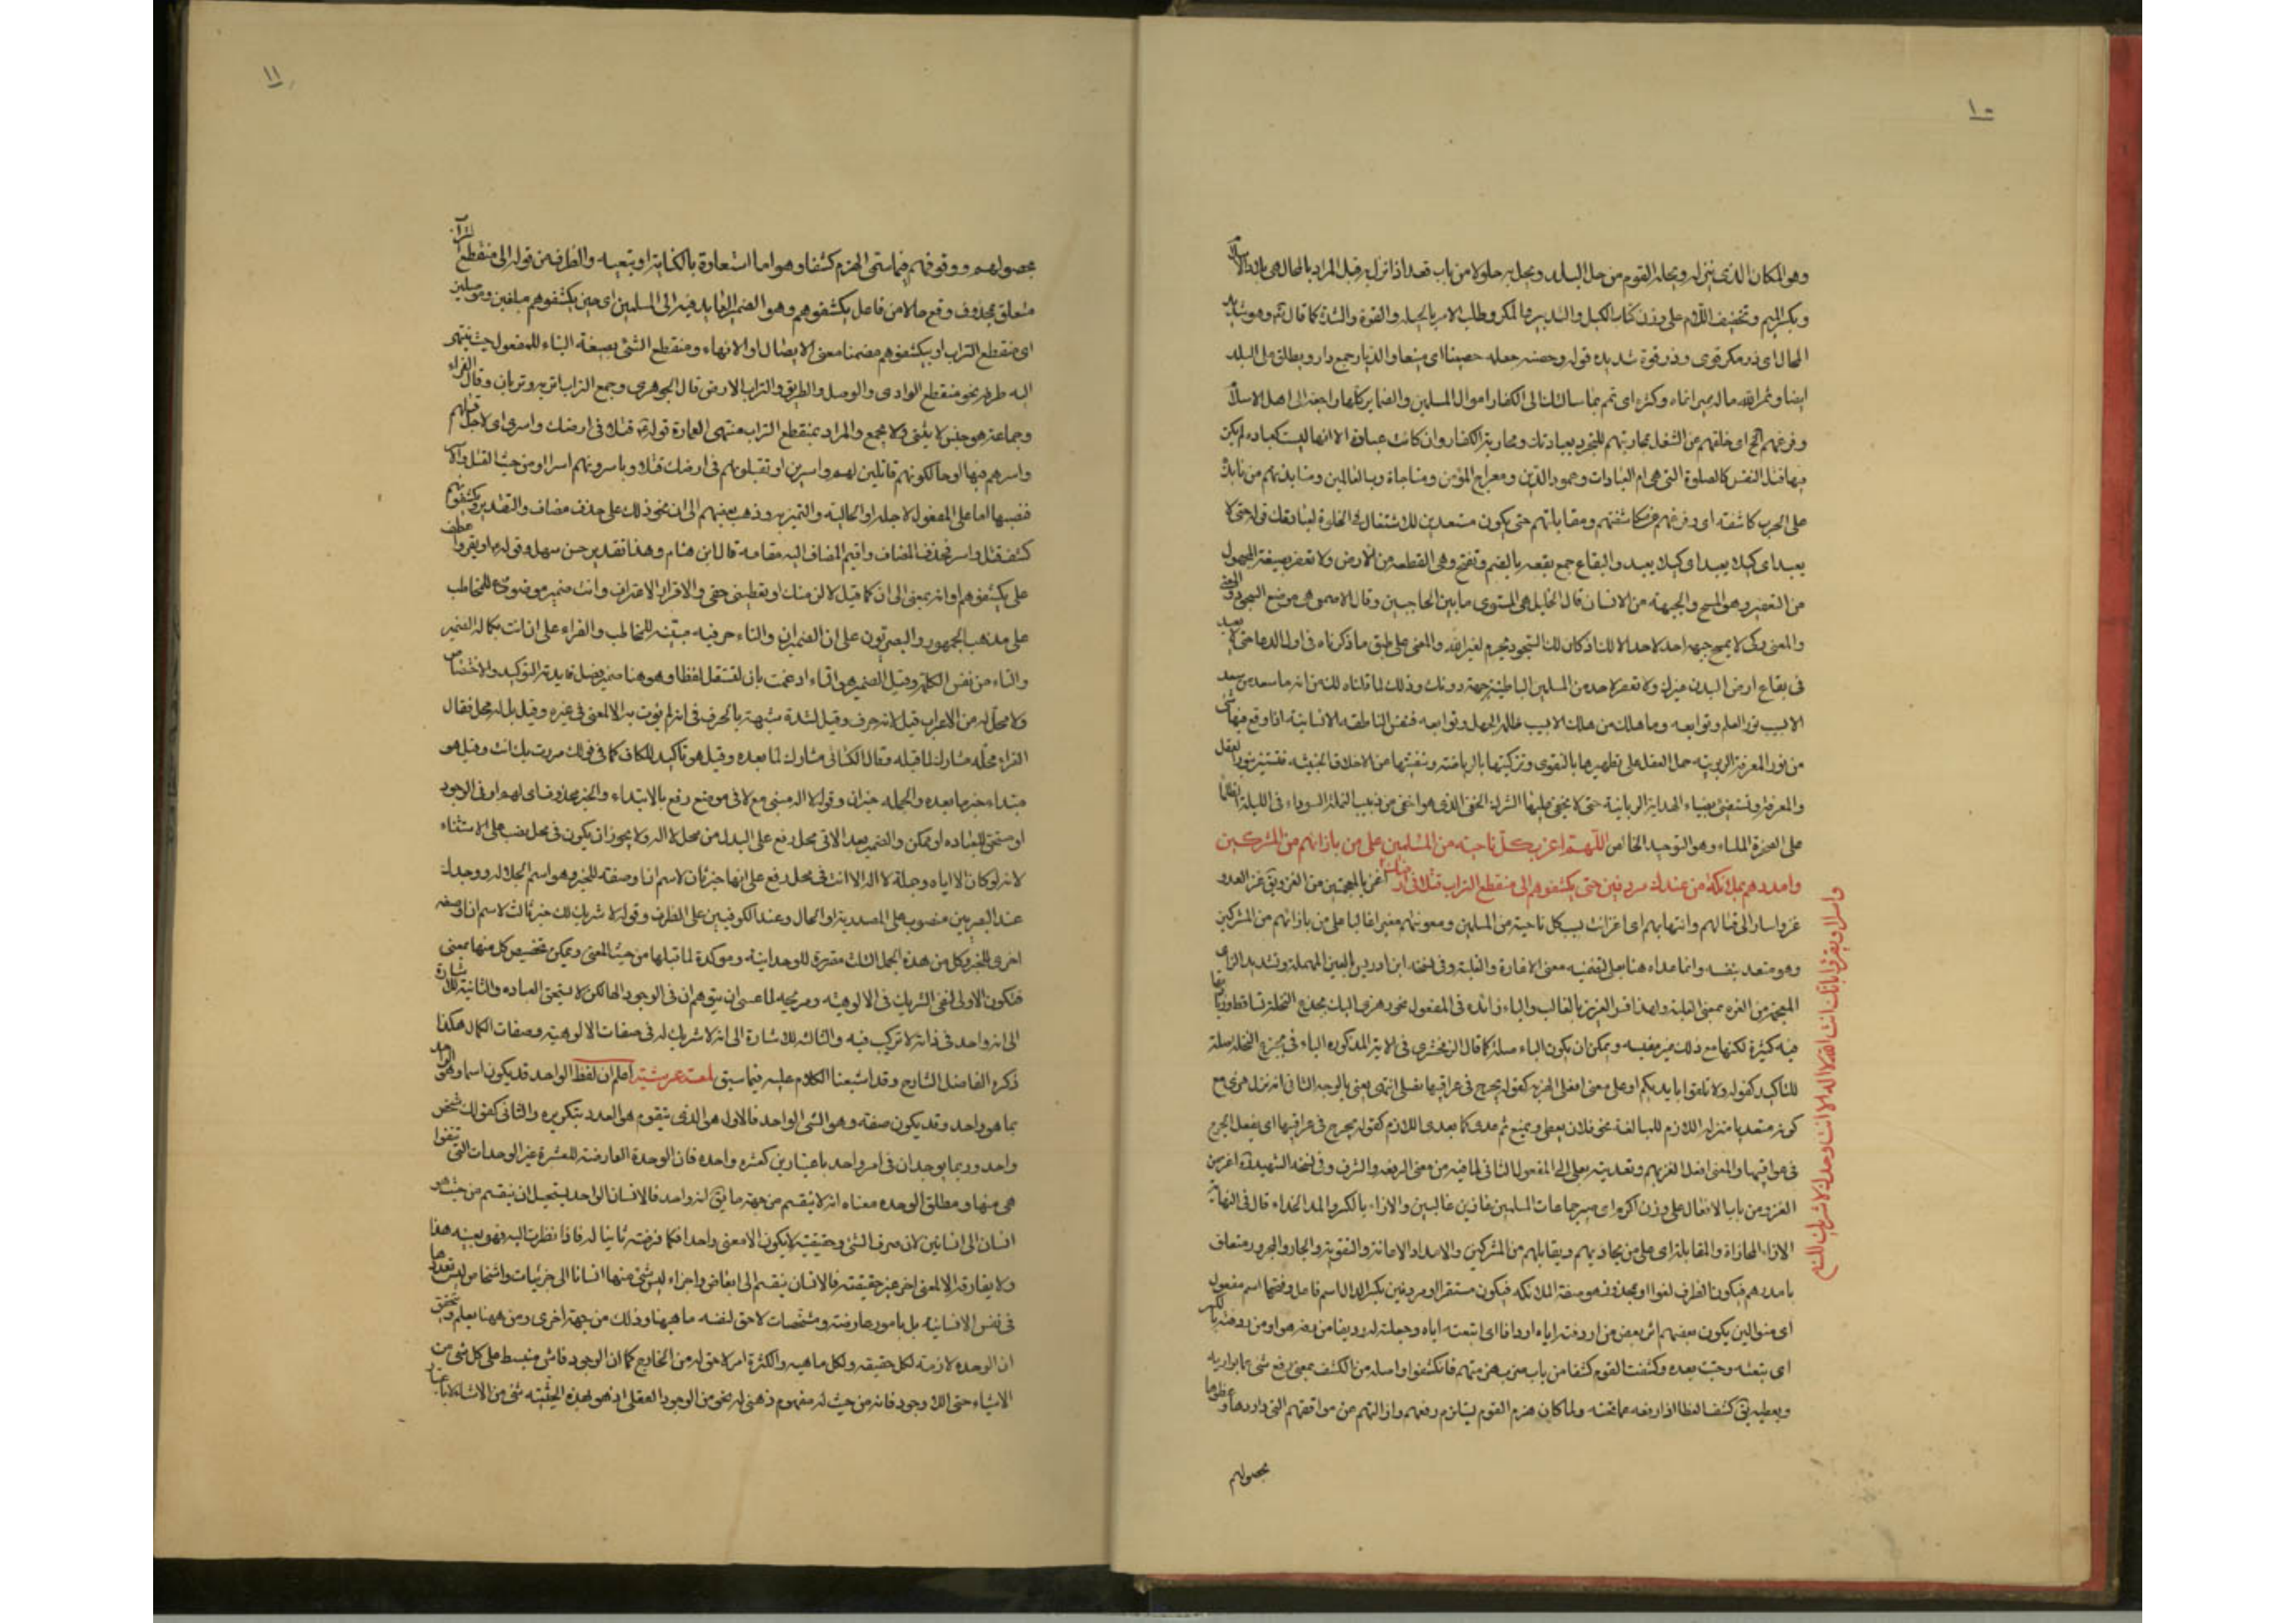 ١٠
وهو المكان الذى ينزله ويحله القوم من حل البلد ويحل به حلولا من باب قعد اذا نزل به وقيل المراد بالمحال هى بلاد الاسلام
وبكسر الميم وتخفيف اللام على وزن كتاب الكيد والتدبير والمكر وطلب الامر بالحيلة والقوة والشدة كما قال تع وهو شديد
المحال اى ذو مكر قوى وذو قوة شديده قوله وحصنه جعله حصينا اى منيعا والديار جمع دار ويطلق على البلد
ايضا وثمر الله ماله اى تمم بما سالك لنا الى الكفار اموال المسلمين والضماير كلها راجعه الى اهل الاسلام
وفرغهم الخ اى خلقهم عن الشغل بمحاربتهم للتجرد بعبادتك ومحاربة الكفار وان كانت عبادة الا انها ليست كعباده لم يكن
فيها شغل النفس كالصلوة التى هى ام العبادات وعمود الدين ومعراج المؤمن ومناجاة رب العالمين ومنابذتهم من نابذه
على الحرب كاشفه اى وفرغهم عن مكاشفتهم ومقابلتهم حتى يكون مستعدين للاشتغال فى الخلوة لعبادتك قوله حتى لا
يعبد اى كيلا يعبد اوكيلا يعبد والبقاع جمع بقعه بالضم وتفتح وهى القطعه من الارض ولا تعفر بصيغة المجهول
من التعفير وهو المسح والجبهه من الانسان قال الخليل هى المستوى ما بين الحاجبين وقال الاصمعى هى موضع السجود
والمعنى وكى لا يمسح جبهه احد لاحد الا لك اذ كان لك السجود يحرم لغير الله والمعنى على طبق ما ذكرناه فى اول الدعا حتى لا يعبد
فى بقاع ارض البدن غيرك ولا تعفر لاحد من المسلمين الباطنية جبهة دونك وذلك لما قلناه لك من انه ما سعد من سعد
الا بسبب نور العلم وتوابعه وما هلك من هلك الا بسبب ظلمة الجهل وتوابعه فنفس الناطقه الانسانية اذا وقع فيها شئ
من نور المعرفة الربوبيه حمل العقل على تطهيرها بالتقوى وتزكيتها بالرياضته وتنقيتها من الاخلاق الخبيثه فتستنير بنور العقل
والمعرفة وتستضئ بضياء الهداية الربانية حتى لا يخفى عليها الشرك الخفى الذى هو اخفى من دبيب النملة السوداء فى الليلة الظلماء
على الصخرة الملساء وهو التوحيد الخالص اللهم اغز بكل ناحية من المسلمين على من بازائهم من المشركين
وامددهم بملائكة من عندك مردفين حتى يكشفوهم الى منقطع التراب قتلا فى ارضك اغز بالمعجمتين من الغزو يق غزا العدو
واسرا او يقروا بانك انت الله لا اله الا انت وحدك لا شريك لك
غزوا سار الى قتالهم وانتهابهم اى اغز انت بسبب كل ناحية من المسلمين ومعونتهم مغيرا غالبا على من بازائهم من المشركين
وهو متعد بنفسه وانما عداه هنا بعلى لتضمينه معنى الاغارة والغلبة وفى نسخة ابن ادريس بالعين المهملة وتشديد الزاى
المعجمة من العزه بمعنى الغلبة ولهذا فسر العزيز بالغالب والباء زائده فى المفعول نحو وهزى اليك بجذع النخلة تساقط وزيادتها
فيه كثيرة لكنها مع ذلك غير مقيسه ويمكن ان يكون الباء صلة كما قال الزمخشرى فى الاية المذكوره الباء فى بجذع النخله صلة
للتاكيد كقوله ولا تلقوا بايديكم او على معنى افعلى الهز به كقوله يجرح فى عراقيبها نصلى انتهى يعنى بالوجه الثانى انه نزل هزى مع
كونه متعديا منزلة اللازم للمبالغة نحو فلان يعطى ويمنع ثم عدى كما يعدى اللازم كقوله يجرح فى عراقيبها اى يفعل الجرح
فى عراقيبها والمعنى افعل العز بهم وتعديته بعلى الى المفعول الثانى لما فيه من معنى الرفعه والشرف وفى نسخة الشهيد ره اغز من
الغزو من باب الافعال على وزن اكرم اى صير جماعات المسلمين غازين غالبين والازاء بالكسر والمد الحذاء قال فى النهاية
الازاء المحاذاة والمقابلة اى على من يحاذيهم ويقابلهم من المشركين والامداد الاعانة والتقوية والجار والمجرور متعلق
بامددهم فيكون الظرف لغوا او بمحذوف هو صفة الملائكه فيكون مستقرا ومردفين بكسر الدال اسم فاعل وفتحها اسم مفعول
اى متوالين يكون بعضهم اثر بعض من اردفته اياه اردافا اى اتبعته اياه وجعلته له رديفا من بعده او من ردفته بالكسر
اى تبعته وجئت بعده وكشفت القوم كشفا من باب ضرب هزمتهم فانكشفوا واصله من الكشف بمعنى رفع شئ عما يواريه
ويغطيه يق كشف الغطا اذا رفعه عما تحته ولما كان هزم القوم يستلزم رفعهم وازالتهم عن مواقفهم التى داروها وغطوها
بحصولهم
١١
بحصولهم ووقوفهم فيها سمى الهزم كشفا وهو اما استعارة بالكناية او تبعيه والظرف من قوله الى منقطع التراب
متعلق بمحذوف وقع حالا من فاعل يكشفوهم وهو الضمير العايد فيه الى المسلمين اى حين يكشفوهم مبلغين وموصلين
اى منقطع التراب او بيكشفوهم مضمنا معنى الايصال او الانهاء ومنقطع الشئ بصيغة البناء للمفعول حيث ينتهى
اليه طرفه نحو منقطع الوادى والوصل والطريق والتراب الارض قال الجوهرى وجمع التراب اتربه وتربان وقال الفراء
وجماعة هو جنس لا يثنى ولا يجمع والمراد بمنقطع التراب منتهى العمارة قوله ع قتلا فى ارضك واسرا اى لاجل قتلهم
واسرهم فيها او حالكونهم قاتلين لهم واسرين او تقتلونهم فى ارضك قتلا وياسرونهم اسرا او من حيث القتل والاسر
فنصبها اما على المفعول لاجله او الحالية والتميز وذهب بعضهم الى ان نحو ذلك على حذف مضاف والتقدير ويكشفونهم
كشف قتل واسر فحذف المضاف واقيم المضاف اليه مقامه قال ابن هشام وهذا تقدير حسن سهل وقوله او يقروا عطف
على يكشفوهم او انه بمعنى الى ان كما قيل لالزمنك او تعطينى حقى والاقرار الاعتراف وانت ضمير موضوع للمخاطب
على مذهب الجمهور والبصريون على ان الضمير ان والتاء حرفيه مبينه للمخاطب والفراء على ان انت بكماله الضمير
والتاء من نفس الكلمة وقيل الضمير هى التاء ادغمت بان لتستقل لفظا وهو هنا ضمير فصل فايدته التوكيد والاختصاص
ولا محل له من الاعراب قيل لانه حرف وقيل لشدة شبهه بالحرف فى انه لم يؤت به الا لمعنى فى غيره وقيل بل له محل فقال
الفراء محله مشارك لما قبله وقال الكسائى مشارك لما بعده وقيل هو تاكيد للكاف كما فى قولك مررت بك انت وقيل هو
مبتداء خبره ما بعده والجمله خبر ان وقوله لا اله مبنى مع لا فى موضع رفع بالابتداء والخبر محذوف اى لهم او فى الوجود
او مستحق للعباده او ممكن والضمير بعد الا فى محل رفع على البدل من محل لا اله ولا يجوز ان يكون فى محل نصب على الاستثناء
لانه لو كان الا اياه وجملة لا اله الا انت فى محل رفع على انها خبر ثان لاسم ان او صفة للخبر وهو اسم الجلاله ووحدك
عند البصريين منصوب على المصدرية او الحال وعند الكوفيين على الظرف وقوله لا شريك لك خبر ثالث لاسم ان او صفه
اخرى للخبر وكل من هذه الجمل الثلث مقررة للوحدانية ومؤكدة لما قبلها من حيث المعنى ويمكن تخصيص كل منها بمعنى
فتكون الاولى لنفى الشريك فى الالوهيه ومزيحه لما عسى ان يتوهم ان فى الوجود الها لكن لا يستحق العباده والثانية للاشارة
الى انه واحد فى ذاته لا تركيب فيه والثالثه للاشارة الى انه لا شريك له فى صفات الالوهيه وصفات الكمال هكذا
ذكره الفاضل الشارح وقد اشبعنا الكلام عليه فيما سبق لمعة عرشية اعلم ان لفظ الواحد قد يكون اسما وهو الواحد
بما هو واحد وقد يكون صفته وهو الشئ الواحد فالاول هو الذى يتقوم هو العدد بتكريره والثانى كقولك شخص
واحد وربما يوجدان فى امر واحد باعتبارين كعشره واحده فان الوحدة العارضة للعشرة غير الوحدات التى تتقوا
هى منها ومطلق الوحده معناه انه لا ينقسم من جهة ما يق له واحد فالانسان الواحد يستحيل ان ينقسم من حيث هو
انسان الى انسانين لان صرف الشئ وحقيقته لا يكون الا معنى واحدا فكلما فرضته ثانيا له فاذا نظرت اليه فهو بعينه هذا
ولا يفارقه الا لمعنى اخر غير حقيقته فالانسان ينقسم الى ابعاض واجزاء ليس شئ منها انسانا الى جزئيات واشخاص ليس تعددها
فى نفس الانسانيه بل بامور عارضته ومشخصات لاحق لنفس ماهيتها وذلك من جهة اخرى ومن ههنا يعلم ويتحقق
ان الوحده لازمة لكل حقيقه ولكل ماهيه والكثرة امر لاحق له من الخارج كما ان الوجود فاش منبسط على كل شئ من
الاشياء حتى اللا وجود فانه من حيث له مفهوم ذهنى له نحو من الوجود العقلى اذ هو بهذه الحيثيه شئ من الاشياء